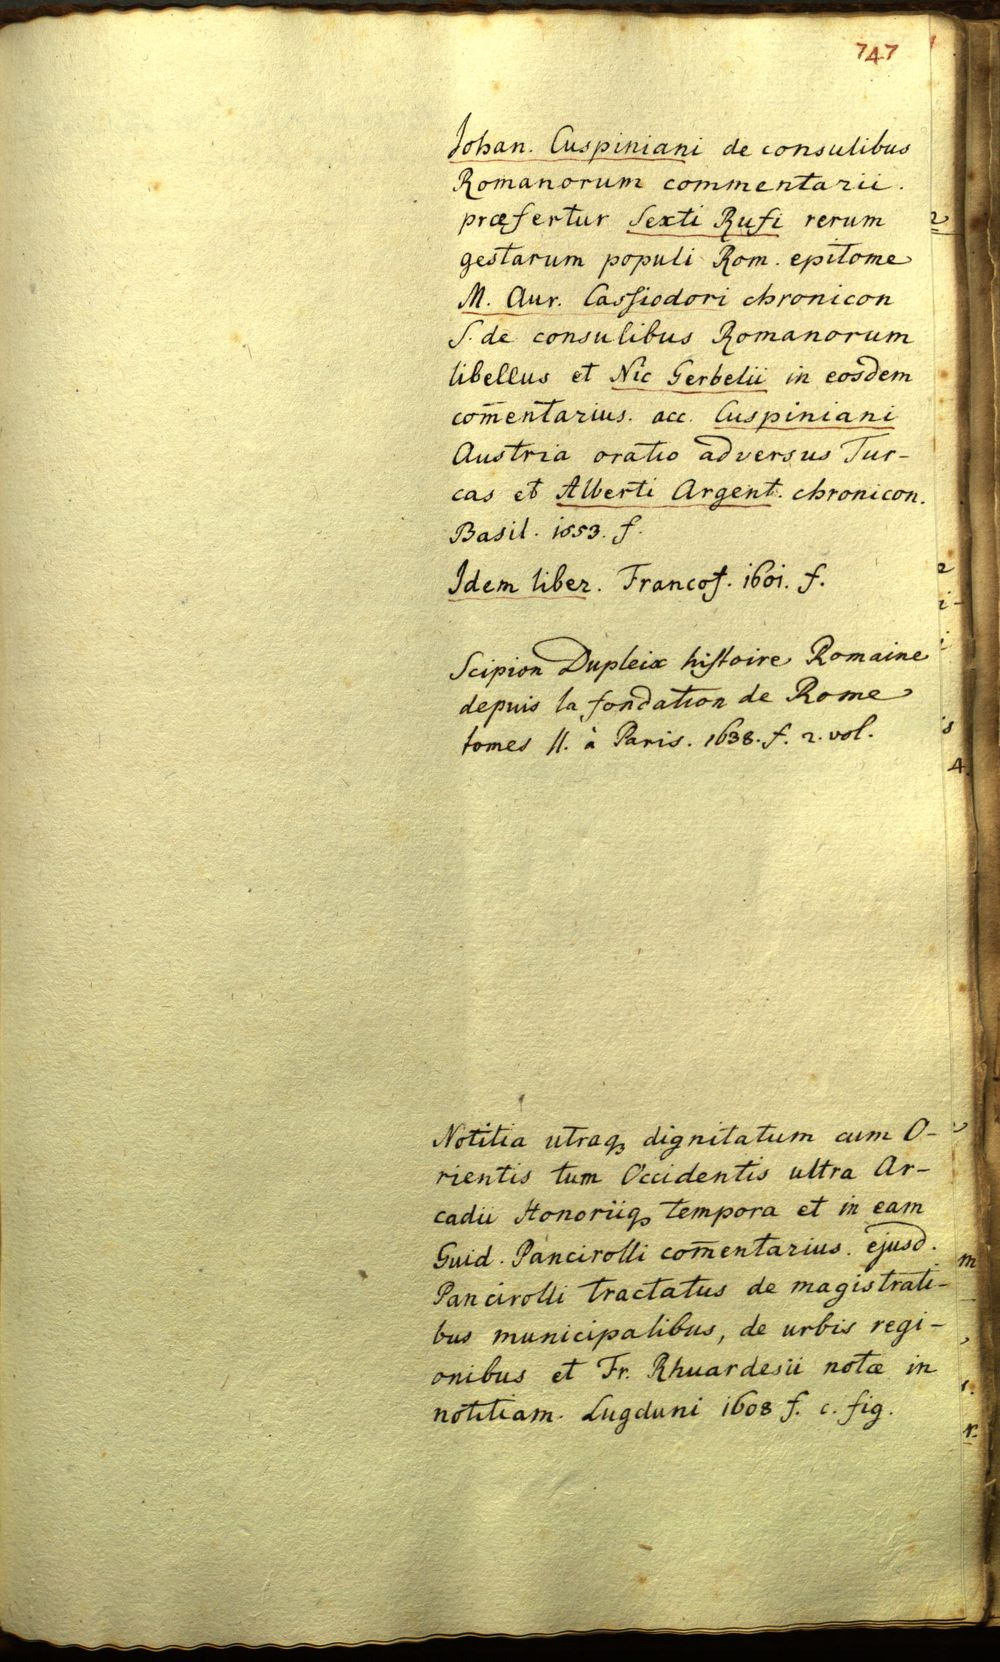 747
Johan. Cuspiniani de consulibus
Romanorum commentarii.
præfertur Sexti Rufi rerum
gestarum populi Rom. epitome
M. Aur. Cassiodori chronicon
S. de consulibus Romanorum
libellus et Nic Gerbelii in eosdem
com̄entarius. acc. Cuspiniani
Austria oratio adversus Tur-
cas et Alberti Argent. chronicon.
Basil. 1553. f.
Idem liber. Francof. 1601. f.
Scipion Dupleix histoire Romaine
depuis la fondation de Rome
tomes II. à Paris. 1638. f. 2. vol.
Notitia utraq; dignitatum cum O-
rientis tum Occidentis ultra Ar-
cadii Honoriiq; tempora et in eam
Guid. Pancirolli com̄entarius. ejusd.
Pancirolli tractatus de magistrati-
bus municipalibus, de urbis regi-
onibus et Fr. Rhuardesii notæ in
notitiam. Lugduni 1608 f. c. fig.